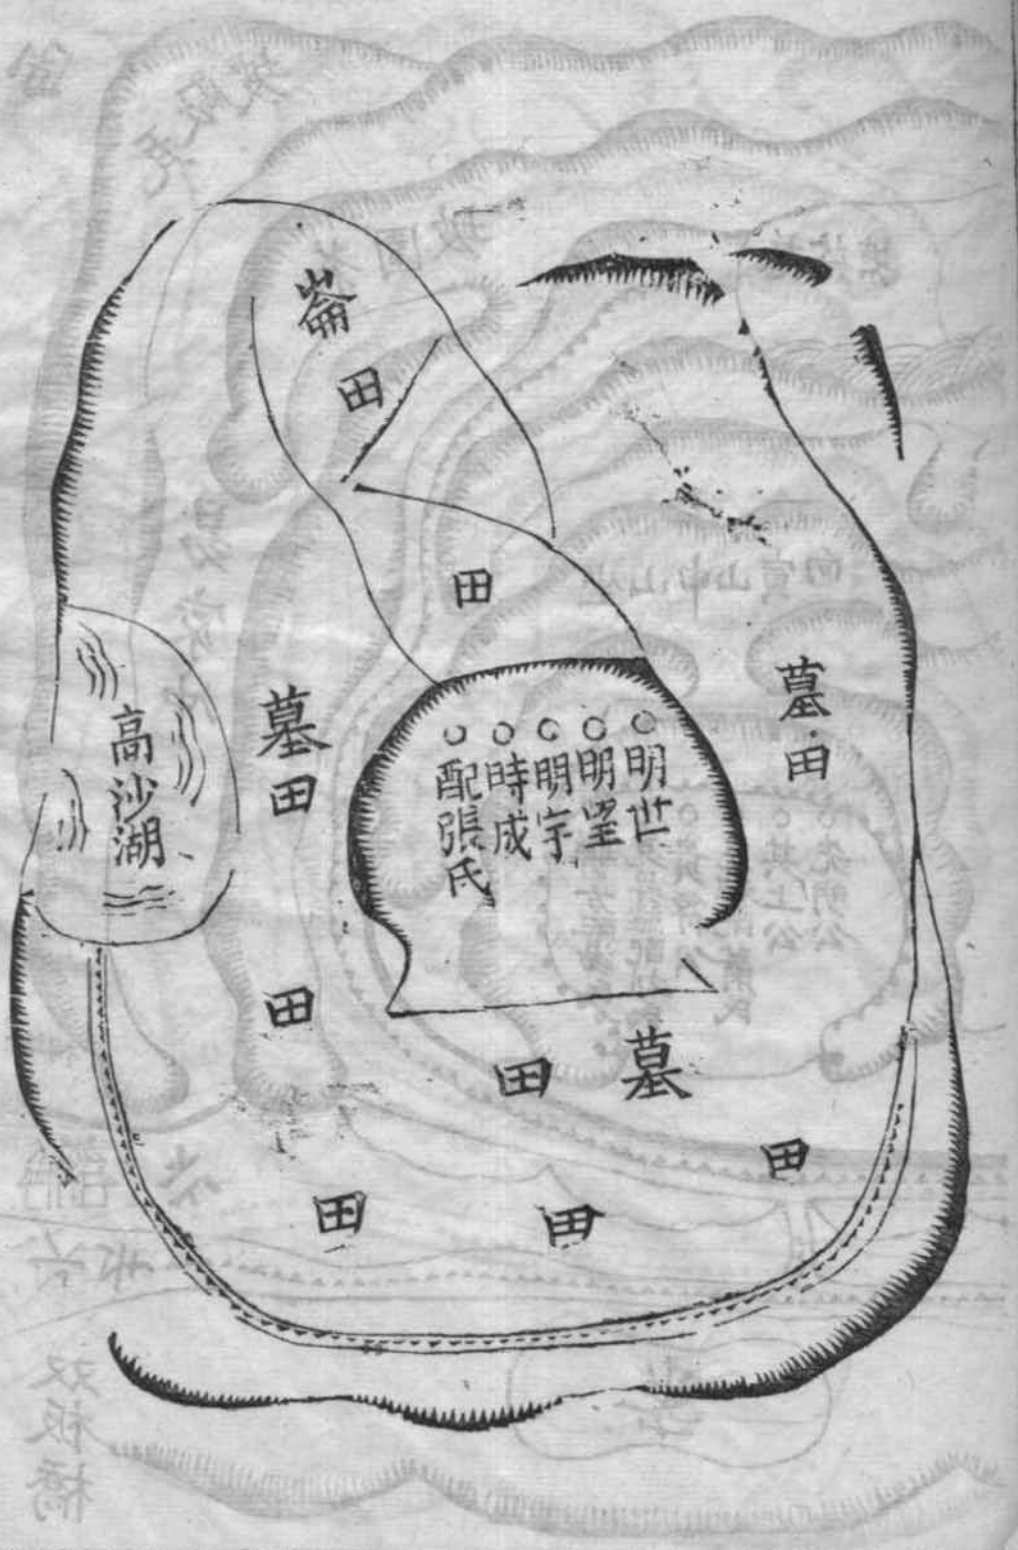 崙田
田
墓田
明世
明望
明宇
時成
配張氏
墓田
高沙湖
田
墓田
田
田
田